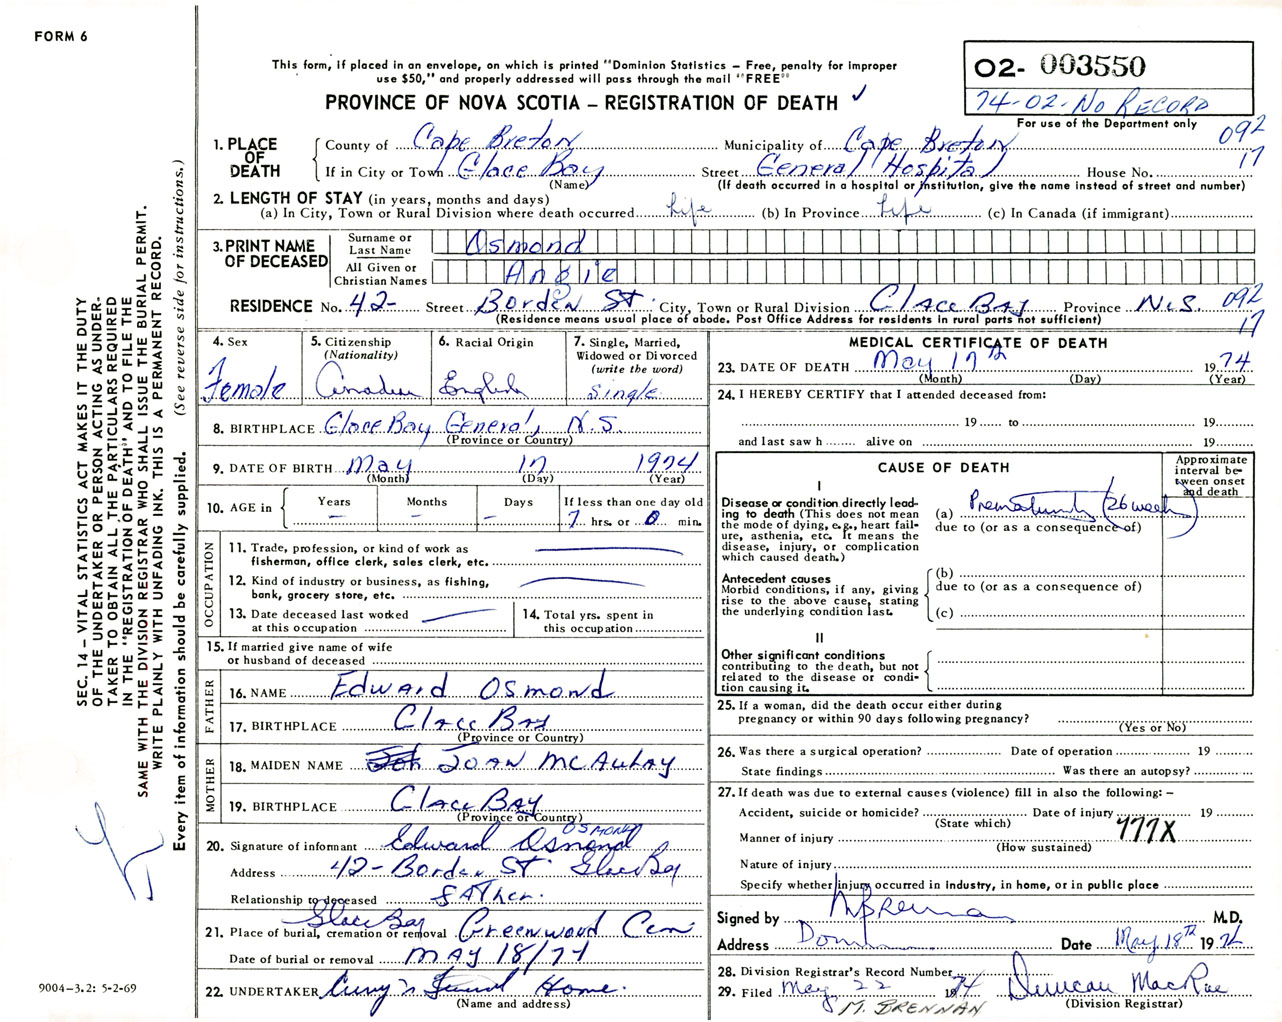 FORM 6
This form, if placed in an envelope, on which is printed "Dominion Statistics – Free, penalty for improper
use $50," and properly addressed will pass through the mail "FREE"
PROVINCE OF NOVA SCOTIA – REGISTRATION OF DEATH ✓
02- 003550
74-02-No RECORD
For use of the Department only
092
17
1. PLACE OF DEATH
County of Cape Breton Municipality of Cape Breton
If in City or Town Glace Bay Street General Hospital House No.
(Name) (If death occurred in a hospital or institution, give the name instead of street and number)
2. LENGTH OF STAY (in years, months and days)
(a) In City, Town or Rural Division where death occurred Life (b) In Province Life (c) In Canada (if immigrant)
3. PRINT NAME OF DECEASED
Surname or Last Name Osmond
All Given or Christian Names Angie
RESIDENCE No. 42- Street Borden St. City, Town or Rural Division Glace Bay Province N.S. 092
17
(Residence means usual place of abode. Post Office Address for residents in rural parts not sufficient)
4. Sex
Female
5. Citizenship
(Nationality)
Canadian
6. Racial Origin
English
7. Single, Married,
Widowed or Divorced
(write the word)
Single
8. BIRTHPLACE Glace Bay General, N.S.
(Province or Country)
9. DATE OF BIRTH May 17 1974
(Month) (Day) (Year)
10. AGE in
Years Months Days If less than one day old
– – – 7 hrs. or 0 min.
OCCUPATION
11. Trade, profession, or kind of work as
fisherman, office clerk, sales clerk, etc.
12. Kind of industry or business, as fishing,
bank, grocery store, etc.
13. Date deceased last worked
at this occupation
14. Total yrs. spent in
this occupation
15. If married give name of wife
or husband of deceased
FATHER
16. NAME Edward Osmond
17. BIRTHPLACE Glace Bay
(Province or Country)
MOTHER
18. MAIDEN NAME Joan McAulay
19. BIRTHPLACE Glace Bay
(Province or Country)
OSMOND
20. Signature of informant Edward Osmond
Address 42- Borden St Glace Bay
Relationship to deceased Father.
21. Place of burial, cremation or removal Glace Bay Greenwood Cem
Date of burial or removal MAY 18/74
22. UNDERTAKER Curry's Funeral Home.
(Name and address)
MEDICAL CERTIFICATE OF DEATH
23. DATE OF DEATH May 17th 1974
(Month) (Day) (Year)
24. I HEREBY CERTIFY that I attended deceased from:
19 to 19
and last saw h alive on 19
CAUSE OF DEATH
Approximate
interval be-
tween onset
and death
I
Disease or condition directly lead-
ing to death (This does not mean
the mode of dying, e.g., heart fail-
ure, asthenia, etc. It means the
disease, injury, or complication
which caused death.)
(a) Prematurity (26 week)
due to (or as a consequence of)
Antecedent causes
Morbid conditions, if any, giving
rise to the above cause, stating
the underlying condition last.
(b)
due to (or as a consequence of)
(c)
II
Other significant conditions
contributing to the death, but not
related to the disease or condi-
tion causing it.
25. If a woman, did the death occur either during
pregnancy or within 90 days following pregnancy?
(Yes or No)
26. Was there a surgical operation? Date of operation 19
State findings Was there an autopsy?
27. If death was due to external causes (violence) fill in also the following: –
Accident, suicide or homicide? Date of injury 19
(State which)
777X
Manner of injury
(How sustained)
Nature of injury
Specify whether injury occurred in industry, in home, or in public place
Signed by M Brennan M.D.
Address Date May 18th 1974
28. Division Registrar's Record Number
29. Filed May 22 1974 Duncan MacRae
M. BRENNAN (Division Registrar)
SEC. 14 – VITAL STATISTICS ACT MAKES IT THE DUTY
OF THE UNDERTAKER OR PERSON ACTING AS UNDER-
TAKER TO OBTAIN ALL THE PARTICULARS REQUIRED
IN THE "REGISTRATION OF DEATH" AND TO FILE THE
SAME WITH THE DIVISION REGISTRAR WHO SHALL ISSUE THE BURIAL PERMIT.
WRITE PLAINLY WITH UNFADING INK. THIS IS A PERMANENT RECORD.
Every item of information should be carefully supplied. (See reverse side for instructions.)
9004-3.2: 5-2-69